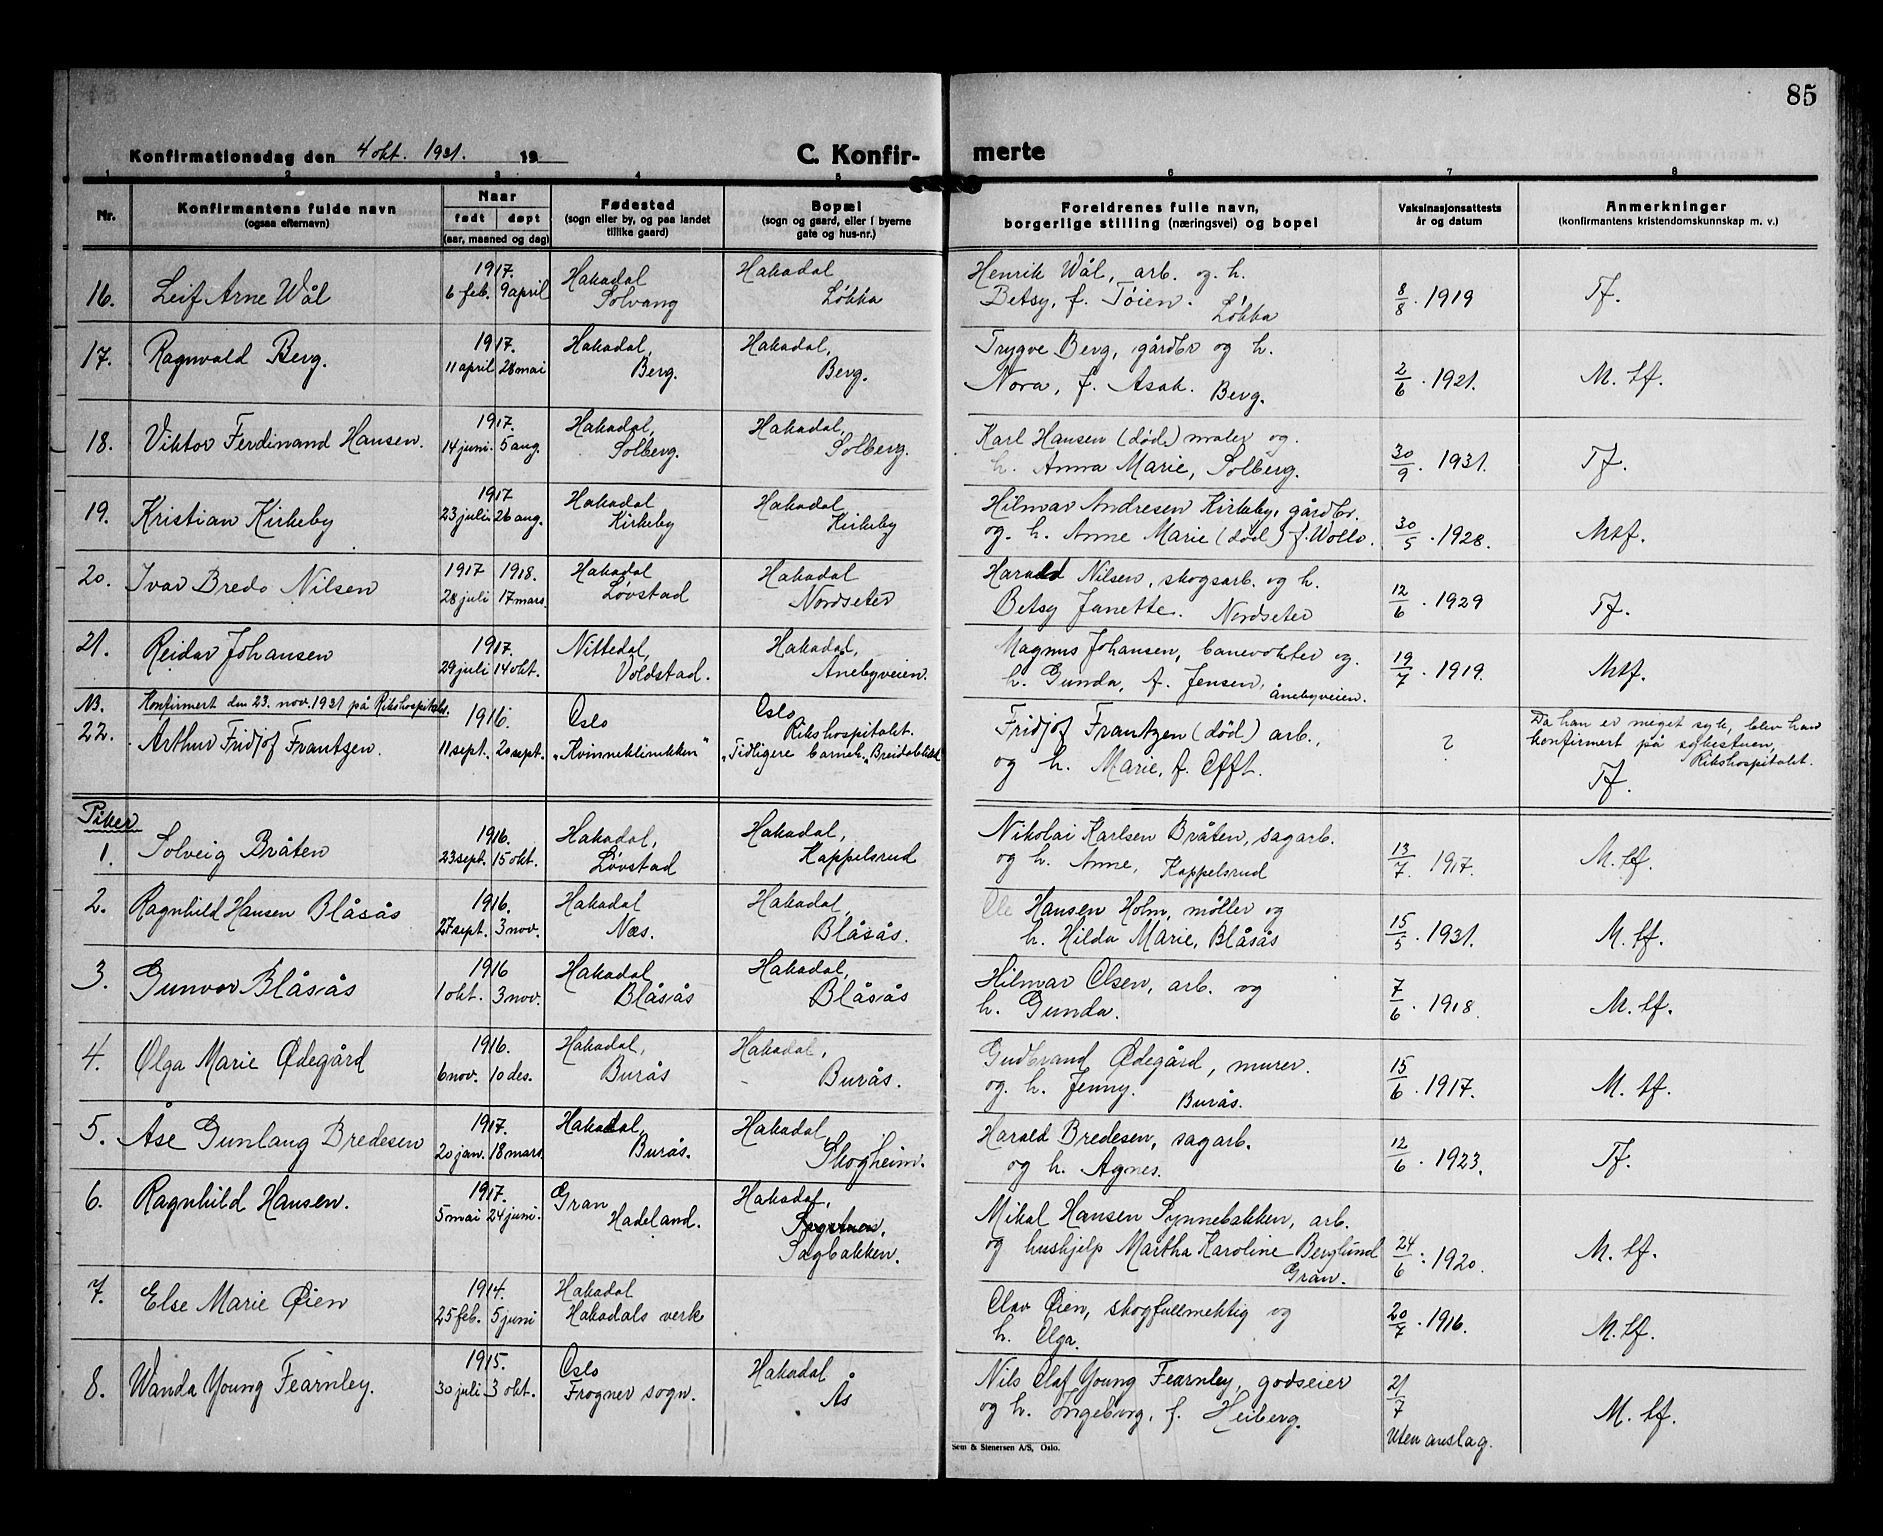 85
Konfirmationsdag den 4 okt. 1931. 19
C. Konfir- merte
1 2 3 4 5 6 7 8
Nr.
Konfirmantens fulde navn
(ogsaa efternavn)
Naar
født døpt
(aar, maaned og dag)
Fødested
(sogn eller by, og paa landet
tillike gaard)
Bopæl
(sogn og gaard, eller i byerne
gate og hus-nr.)
Foreldrenes fulle navn,
borgerlige stilling (næringsvei) og bopel
Vaksinasjonsattests
år og datum
Anmerkninger
(konfirmantens kristendomskunnskap m. v.)
16. Leif Arne Wål
1917.
6 feb. 9 april
Hakadal
Solvang
Hakadal
Løkka
Henrik Wål, arb. og h.
Betsy, f. Tøien. Løkka
8/8. 1919
Tf.
17. Ragnvald Berg.
1917.
11 april 28 mai
Hakadal,
Berg.
Hakadal,
Berg.
Trygve Berg, gårdbr og h.
Nora, f. Asak. Berg.
2/6. 1921.
M. tf.
18. Viktor Ferdinand Hansen.
1917.
14 juni. 5 aug.
Hakadal,
Solberg.
Hakadal,
Solberg.
Karl Hansen (død) maler og.
h. Anna Marie, Solberg.
30/9. 1931.
Tf.
19. Kristian Kirkeby
1917
23 juli 26 aug.
Hakadal
Kirkeby
Hakadal
Kirkeby
Hilmar Andresen Kirkeby, gårdbr.
og. h. Anne Marie (død) f. Wollo.
30/5. 1928.
Mtf.
20. Ivar Bredo Nilsen
1917 1918.
28 juli 17 mars.
Hakadal
Løvstad
Hakadal
Nordseter
Harald Nilsen, skogsarb. og h.
Betsy Janette. Nordseter
12/6. 1929
Tf.
21. Reidar Johansen
1917.
29 juli 14 okt.
Nittedal,
Voldstad.
Hakadal,
Ånebyveien.
Magnus Johansen, banevokter og.
h. Gunda, f. Jensen, Ånebyveien.
19/7. 1919.
Mtf.
NB. Konfirmert den 23. nov. 1931 på Rikshospitalet.
22. Arthur Fridjof Frantzen.
1916.
11 sept. 20 sept.
Oslo
"Kvinneklinikken"
Oslo,
Rikshospitalet.
"Tidligere barneh. "Breidablikk
Fridjof Frantzen (død) arb.,
og h. Marie, f. Offt.
?
Da han er meget syk, blev han
konfirmert på sykestuen,
Rikshospitalet.
Tf.
Piker
1. Solveig Bråten
1916.
23 sept. 15 okt.
Hakadal,
Løvstad
Hakadal,
Kappelsrud
Nikolai Karlsen Bråten, sagarb.
og h. Anne, Kappelsrud
13/7. 1917.
M. tf.
2. Ragnhild Hansen Blåsås
1916.
27 sept. 3 nov.
Hakadal
Næs.
Hakadal,
Blåsås.
Ole Hansen Holm, møller og
h. Hilda Marie, Blåsås
15/5. 1931.
M. tf.
3. Gunvor Blåsås
1916
1 okt. 3 nov.
Hakadal
Blåsås
Hakadal,
Blåsås
Hilmar Olsen, arb. og
h. Gunda.
7/6. 1918.
M. tf.
4. Olga Marie Ødegård
1916.
6 nov. 10 des.
Hakadal,
Burås
Hakadal,
Burås.
Gudbrand Ødegård, murer.
og. h. Jenny. Burås.
15/6. 1917.
M. tf.
5. Åse Gunlaug Bredesen
1917.
20 jan. 18 mars.
Hakadal,
Burås.
Hakadal,
Skogheim.
Harald Bredesen, sagarb.
og h. Agnes.
12/6. 1923.
Tf.
6. Ragnhild Hansen.
1917.
5 mai 24 juni.
Gran
Hadeland.
Hakadal,
Sagbakken.
Mikal Hansen Synnebakken, arb.
og hushjelp Martha Karoline Berglund
Gran.
24/6. 1920.
M. tf.
7. Else Marie Øien
1914.
25 feb. 5 juni
Hakadal
Hakadals verk
Olav Øien, skogfullmektig og
h. Olga.
20/7. 1916.
M. tf.
8. Wanda Young Fearnley.
1915.
30 juli 3 okt.
Oslo
Frogner sogn.
Hakadal
Ås
Nils Olaf Young Fearnley, godseier
og h. Ingeborg, f. Heiberg.
21/7
Uten anslag.
M. tf.
Sem & Stenersen A/S, Oslo.